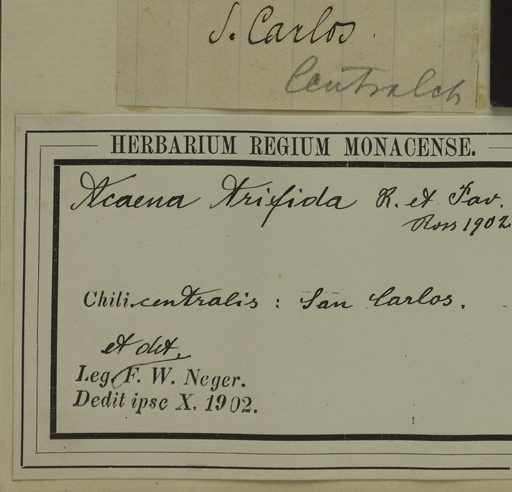 S. Carlos
Centralch
HERBARIUM REGIUM MONACENSE.
Acaena trifida R. et Pav.
Ross 1902
Chili centralis : San Carlos.
et det.
Leg. F. W. Neger.
Dedit ipse X. 1902.